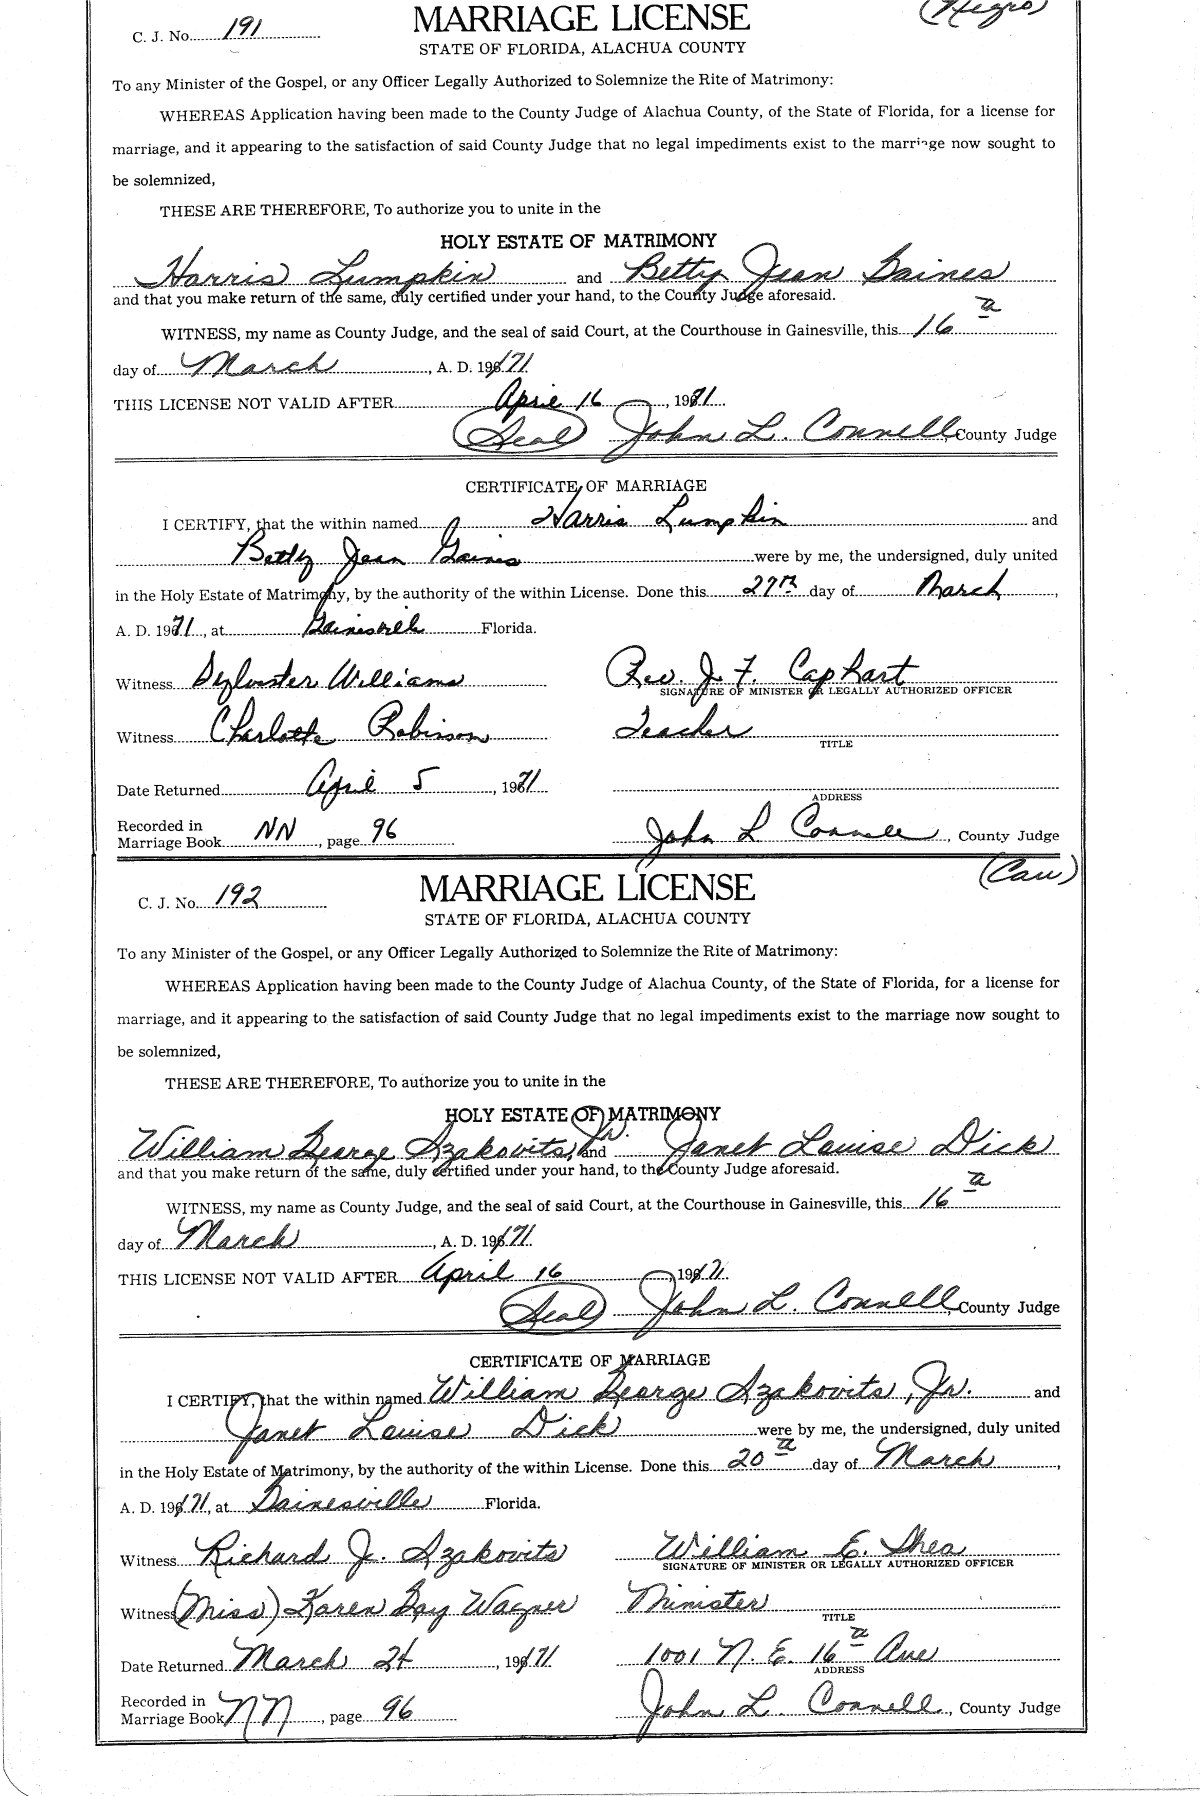 (Negro)
C. J. No. 191
MARRIAGE LICENSE
STATE OF FLORIDA, ALACHUA COUNTY
To any Minister of the Gospel, or any Officer Legally Authorized to Solemnize the Rite of Matrimony:
WHEREAS Application having been made to the County Judge of Alachua County, of the State of Florida, for a license for
marriage, and it appearing to the satisfaction of said County Judge that no legal impediments exist to the marriage now sought to
be solemnized,
THESE ARE THEREFORE, To authorize you to unite in the
HOLY ESTATE OF MATRIMONY
Harris Lumpkin and Betty Jean Gaines
and that you make return of the same, duly certified under your hand, to the County Judge aforesaid.
WITNESS, my name as County Judge, and the seal of said Court, at the Courthouse in Gainesville, this 16
day of March, A. D. 1971
THIS LICENSE NOT VALID AFTER April 16, 1971
(Seal) John L. Connell, County Judge
CERTIFICATE OF MARRIAGE
I CERTIFY, that the within named Harris Lumpkin and
Betty Jean Gaines were by me, the undersigned, duly united
in the Holy Estate of Matrimony, by the authority of the within License. Done this 27th day of March,
A. D. 1971, at Gainesville Florida.
Witness Sylvester Williams Rev. J. F. Caphart
SIGNATURE OF MINISTER OR LEGALLY AUTHORIZED OFFICER
Witness Charlotte Robinson Teacher
TITLE
Date Returned April 5, 1971
ADDRESS
Recorded in
Marriage Book NN, page 96 John L Connell, County Judge
(Cau)
C. J. No. 192
MARRIAGE LICENSE
STATE OF FLORIDA, ALACHUA COUNTY
To any Minister of the Gospel, or any Officer Legally Authorized to Solemnize the Rite of Matrimony:
WHEREAS Application having been made to the County Judge of Alachua County, of the State of Florida, for a license for
marriage, and it appearing to the satisfaction of said County Judge that no legal impediments exist to the marriage now sought to
be solemnized,
THESE ARE THEREFORE, To authorize you to unite in the
HOLY ESTATE OF MATRIMONY
William George Szakovits, Jr. and Janet Louise Dick
and that you make return of the same, duly certified under your hand, to the County Judge aforesaid.
WITNESS, my name as County Judge, and the seal of said Court, at the Courthouse in Gainesville, this 16
day of March, A. D. 1971
THIS LICENSE NOT VALID AFTER April 16, 1971
(Seal) John L. Connell, County Judge
CERTIFICATE OF MARRIAGE
I CERTIFY, that the within named William George Szakovits, Jr. and
Janet Louise Dick were by me, the undersigned, duly united
in the Holy Estate of Matrimony, by the authority of the within License. Done this 20 day of March,
A. D. 1971, at Gainesville Florida.
Witness Richard J. Szakovits William E. Shea
SIGNATURE OF MINISTER OR LEGALLY AUTHORIZED OFFICER
Witness (Miss) Karen Gay Wagner Minister
TITLE
Date Returned March 24, 1971 1001 N. E. 16 Ave
ADDRESS
Recorded in
Marriage Book NN, page 96 John L. Connell, County Judge